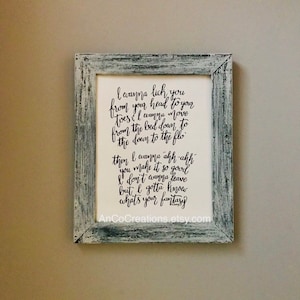 I wanna lick you
from your head to your
toes & I wanna move
from the bed down to
the down to the flo'
then I wanna ahh ahh
you make it so good
I don't wanna leave
but I gotta know
what's your fantasy
AnCoCreations.etsy.com